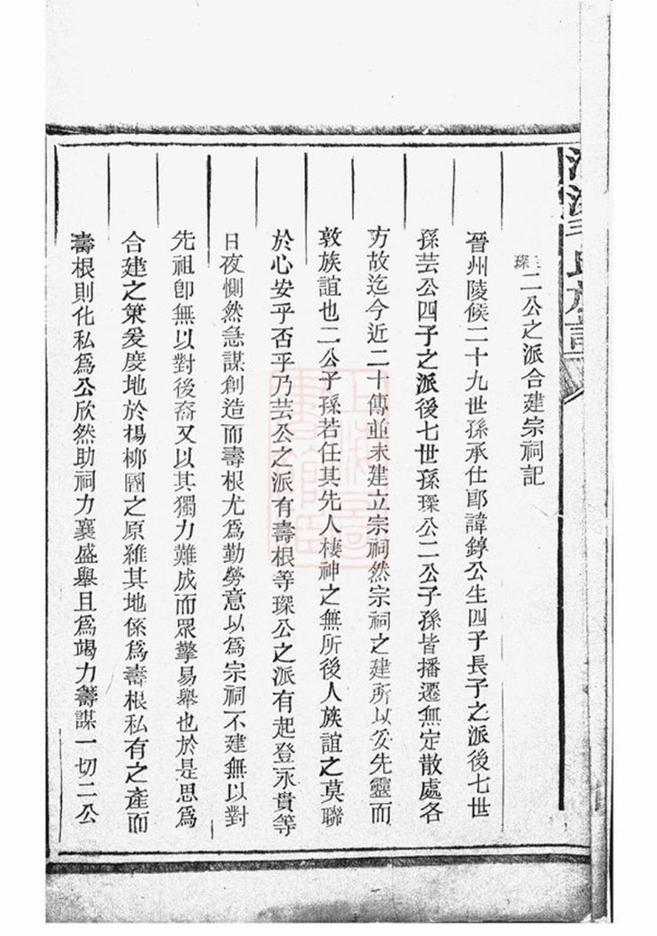 琛二公之派合建宗祠記
晉州陵候二十九世孫承仕郎諱錞公生四子長子之派後七世
孫芸公四子之派後七世孫琛公二公子孫皆播遷無定散處各
方故迄今近二十傳並未建立宗祠然宗祠之建所以妥先靈而
敦族誼也二公子孫若任其先人棲神之無所後人族誼之莫聯
於心安乎否乎乃芸公之派有壽根等琛公之派有起登永貴等
日夜惻然急謀創造而壽根尤爲勤勞意以爲宗祠不建無以對
先祖卽無以對後裔又以其獨力難成而眾擎易舉也於是思爲
合建之策爰度地於楊柳圈之原雖其地係爲壽根私有之產而
壽根則化私爲公欣然助祠力襄盛舉且爲竭力籌謀一切二公
氏族譜